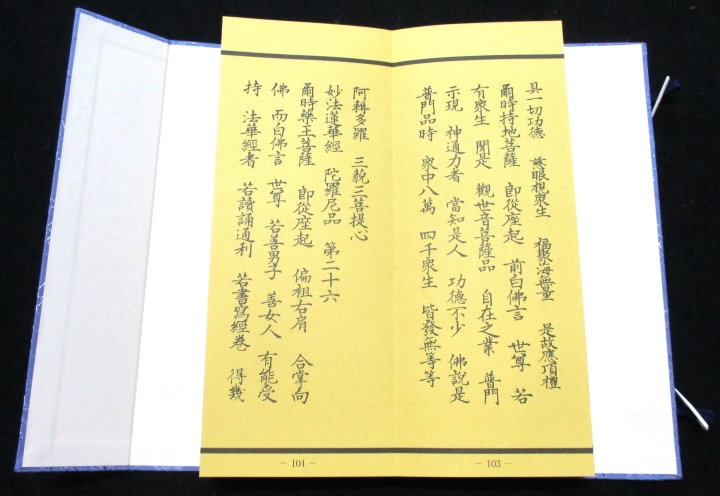 具一切功德 慈眼視衆生 福聚海無量 是故應頂禮
爾時持地菩薩 即從座起 前白佛言 世尊 若
有衆生 聞是 觀世音菩薩品 自在之業 普門
示現 神通力者 當知是人 功德不少 佛說是
普門品時 衆中八萬 四千衆生 皆發無等等
－103－
阿耨多羅 三藐三菩提心
妙法蓮華經 陀羅尼品 第二十六
爾時藥王菩薩 即從座起 偏袒右肩 合掌向
佛 而白佛言 世尊 若善男子 善女人 有能受
持 法華經者 若讀誦通利 若書寫經卷 得幾
－104－